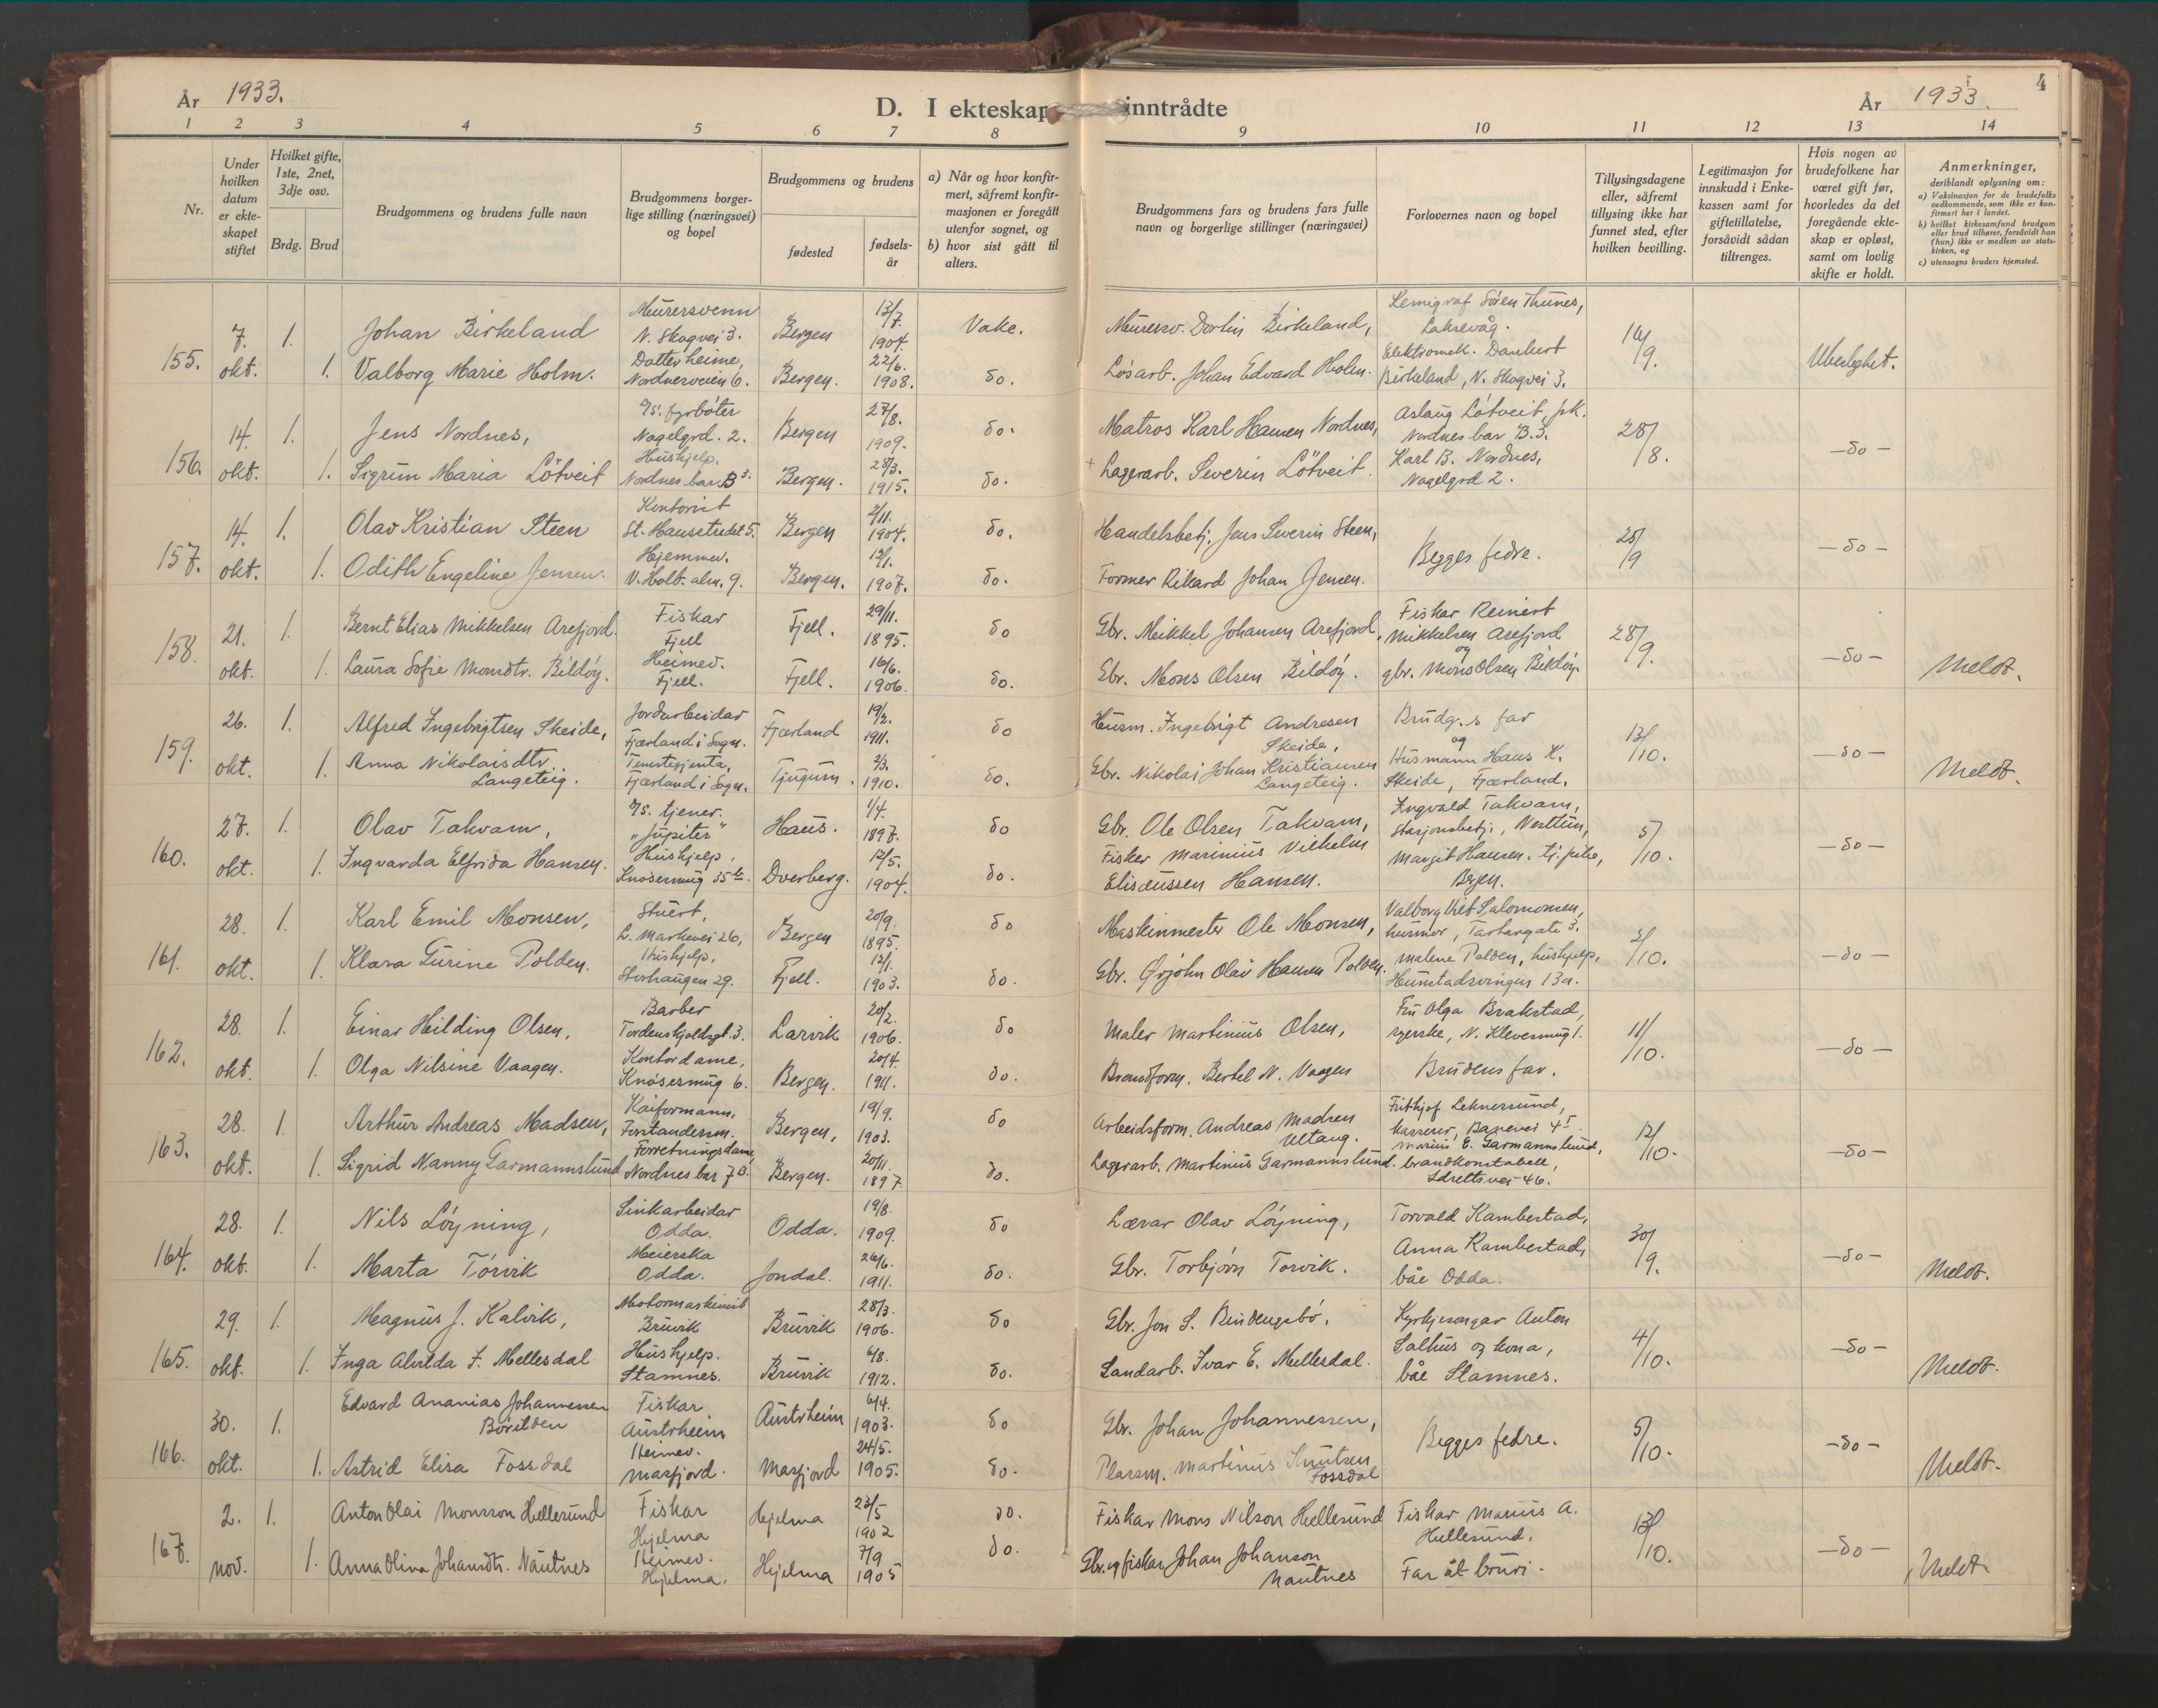 År 1933.
D. I ekteskap inntrådte
År 1933.
4
1 2 3 4 5 6 7 8 9 10 11 12 13 14
Nr.
Under hvilken datum er ekteskapet stiftet
Hvilket gifte, 1ste, 2net, 3dje osv.
Brdg. Brud
Brudgommens og brudens fulle navn
Brudgommens borgerlige stilling (næringsvei) og bopel
Brudgommens og brudens
fødested
fødselsår
a) Når og hvor konfirmert, såfremt konfirmasjonen er foregått utenfor sognet, og
b) hvor sist gått til alters.
Brudgommens fars og brudens fars fulle navn og borgerlige stillinger (næringsvei)
Forlovernes navn og bopel
Tillysingsdagene eller, såfremt tillysing ikke har funnet sted, efter hvilken bevilling.
Legitimasjon for innskudd i Enkekassen samt for giftetillatelse, forsåvidt sådan tiltrenges.
Hvis nogen av brudefolkene har været gift før, hvorledes da det foregående ekteskap er opløst, samt om lovlig skifte er holdt.
Anmerkninger,
deriblandt oplysning om:
a) Vaksinasjon for de brudefolks vedkommende, som ikke er konfirmert her i landet.
b) hvilket kirkesamfund brudgom eller brud tilhører, forsåvidt han (hun) ikke er medlem av statskirken, og
c) utensogns bruders hjemsted.
155. 7. okt. 1. Johan Birkeland Murersvenn N. Skogvei 3. Bergen 13/7. 1904. Vake. Murersv. Dortin Birkeland, Kemigraf Sören Thunes, Laksevåg. 14/9. Uberlighet.
1. Valborg Marie Holm. Datter heime, Nordnesveien 6. Bergen. 22/6. 1908. do. Løsarb. Johan Edvard Holm. Elektromek. Daubert Birkeland, N. Skogvei 3.
156. 14. okt. 1. Jens Nordnes, D/s. fyrbøter Nagelgrd. 2. Bergen 27/8. 1909. do. Matros Karl Hansen Nordnes, Aslaug Lötveit, frk. Nordnes bar B.3. 28/8. —do—
1. Sigrun Maria Lötveit Hushjelp. Nordnes bar. B3. Bergen. 28/3. 1915. do. + Lagerarb. Severin Lötveit. Karl B. Nordnes, Nagelgrd 2.
157. 14. okt. 1. Olav Kristian Steen Kontorist St. Hansstredet 5. Bergen 2/11. 1904. do. Handelsbetj. Jens Severin Steen, Begges fedre. 25/9 —do—
1. Odith Engeline Jensen. Hjemmev. V. Holb. alm. 9. Bergen. 12/1. 1907. do. Former Rikard Johan Jensen.
158. 21. okt. 1. Bernt Elias Mikkelsen Arefjord. Fiskar Fjell Fjell. 29/11. 1895. do Gbr. Mikkel Johansen Arefjord, Fiskar Reinert Mikkelsen Arefjord 28/9. —do— Meldt.
1. Laura Sofie Monsdtr. Bildøy. Heimev. Fjell. Fjell. 16/6. 1906. do. Gbr. Mons Olsen Bildøy. og gbr. Mons Olsen Bildøy.
159. 26. okt. 1. Alfred Ingebrigtsen Skeide, Jordarbeidar Fjærland i Sogn. Fjærland 19/2. 1911. do Husm. Ingebrigt Andresen Skeide, Brudg.s far 13/10. —do— Meldt.
1. Anna Nikolaisdtr Langeteig. Tenestejenta, Fjærland i Sogn. Tjugum. 2/3. 1910. do. Gbr. Nikolai Johan Kristiansen Langeteig. og Husmann Hans K. Skeide, Fjærland.
160. 27. okt. 1. Olav Takvam, D/s. tjener. "Jupiter" Haus. 1/4. 1897. do Gbr. Ole Olsen Takvam, Ingvald Takvam, Stasjonsbetj., Nesttun, 5/10. —do—
1. Ingvarda Elfrida Hansen. Hushjelp, Knøsesmug 35b. Dverberg. 12/5. 1904. do. Fisker Marinius Vilhelm Elisæussen Hansen. Margit Hansen, tj.pike, Bergen.
161. 28. okt. 1. Karl Emil Monsen, Stuert, L. Markevei 26, Bergen 20/9. 1895. do Maskinmester Ole Monsen, Valborg Salomonsen, husmor, Tartargate 3. 2/10. —do—
1. Klara Turine Polden. Hushjelp, Storhaugen 29. Fjell. 12/1. 1903. do. Gbr. Ørjohn Olai Hansen Polden. Malene Polden, hushjelp, Hunstadsvingen 13a.
162. 28. okt. 1. Einar Heilding Olsen, Barber Tordenskjoldsgt. 3. Larvik 20/2. 1906. do Maler Martinius Olsen, Fru Olga Brakstad, syerske, N. Kleversmug 1. 11/10. —do—
1. Olga Nilsine Vaagen. Kontordame, Knøsesmug 6. Bergen. 20/4. 1911. do. Brandform. Bertel N. Vaagen Brudens far.
163. 28. okt. 1. Arthur Andreas Madsen, Kaiformann, Forstandersm. Bergen, 19/9. 1903. do Arbeidsform. Andreas Madsen Ultang. Frithjof Leknessund, kasserer, Banevei 4I. 12/10. —do—
1. Sigrid Nanny Garmannslund Forretningsdame, Nordnes bar 7B. Bergen. 20/11. 1897. do. Lagerarb. Martinus Garmannslund. Marius E. Garmannslund, brandkonstabel, Idrettsvei 46.
164. 28. okt. 1. Nils Løyning, Sinkarbeidar Odda. Odda. 19/8. 1909. do Lærar Olav Løyning, Torvald Kambestad, 30/9. —do— Meldt.
1. Marta Torvik Meierska Odda. Jondal. 26/6. 1911. do. Gbr. Torbjörn Torvik. Anna Kambestad, båe Odda.
165. 29. okt. 1. Magnus J. Kalvik, Motormaskinist Bruvik Bruvik 28/3. 1906. do Gbr. Jon S. Bindengsbö, Kyrkjesongar Anton 4/10. —do— Meldt.
1. Inga Alvilda I. Mellesdal Hushjelp. Stamnes. Bruvik 6/8. 1912. do. Sandarb. Ivar E. Mellesdal. Salhus og kona, båe Stamnes.
166. 30. okt. 1. Edvard Ananias Johannessen Börilden Fiskar Austrheim Austrheim 6/4. 1903. do Gbr. Johan Johannessen, Begges fedre. 5/10. —do— Meldt.
1. Astrid Elisa Fossdal Heimev. Masfjord. Masfjord 24/5. 1905. do. Plassm. Martinus Knutsen Fossdal
167. 2. nov. 1. Anton Olai Monsson Hellesund Fiskar Hjelma Hjelma 23/5 1902 do. Fiskar Mons Nilson Hellesund Fiskar Marius A. Hellesund. 13/10. —do— Meldt
1. Anna Olina Johansdtr. Nautnes Heimev. Hjelma. Hjelma 7/9 1905 do. Gbr. og fiskar Johan Johanson Nautnes Far åt bruri.